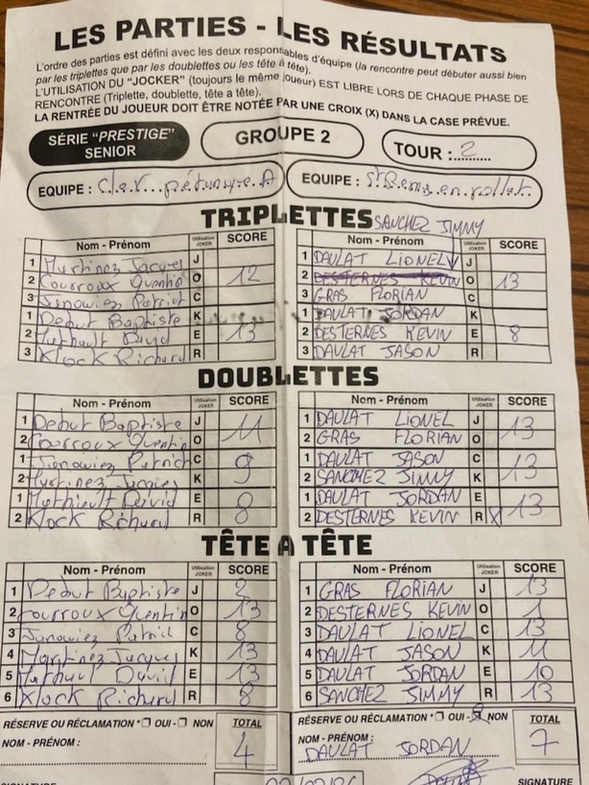 LES PARTIES - LES RÉSULTATS
L'ordre des parties est défini avec les deux responsables d'équipe (la rencontre peut débuter aussi bien
par les triplettes que par les doublettes ou les tête à tête).
L'UTILISATION DU "JOCKER" (toujours le même joueur) EST LIBRE LORS DE CHAQUE PHASE DE
RENCONTRE (Triplette, doublette, tête a tête).
LA RENTRÉE DU JOUEUR DOIT ÊTRE NOTÉE PAR UNE CROIX (X) DANS LA CASE PRÉVUE.
SÉRIE "PRESTIGE" SENIOR GROUPE 2 TOUR : 2
EQUIPE : pétanque A EQUIPE : St Remy en rollat
TRIPLETTES SANCHEZ JIMMY
Nom - Prénom Utilisation JOKER SCORE Nom - Prénom Utilisation JOKER SCORE
1 Martinez Jacques J 1 DAULAT LIONEL J
2 Courroux Quentin O 12 2 DESTERNES KEVIN O 13
3 Janowiez Patrick C 3 GRAS FLORIAN C
1 Debut Baptiste K 1 DAULAT JORDAN K
2 Mathault David E 13 2 DESTERNES KEVIN E 8
3 Klock Richard R 3 DAULAT JASON R
DOUBLETTES
Nom - Prénom Utilisation JOKER SCORE Nom - Prénom Utilisation JOKER SCORE
1 Debut Baptiste J 11 1 DAULAT LIONEL J 13
2 Courroux Quentin O 2 GRAS FLORIAN O
1 Janowiez Patrick C 9 1 DAULAT JASON C 13
2 Martinez Jacques K 2 SANCHEZ JIMMY K
1 Mathault David E 8 1 DAULAT JORDAN E 13
2 Klock Richard R 2 DESTERNES KEVIN R X
TÊTE A TÊTE
Nom - Prénom Utilisation JOKER SCORE Nom - Prénom Utilisation JOKER SCORE
1 Debut Baptiste J 1 GRAS FLORIAN J 13
2 Courroux Quentin O 13 2 DESTERNES KEVIN O 1
3 Janowiez Patrick C 8 3 DAULAT LIONEL C 13
4 Martinez Jacques K 13 4 DAULAT JASON K 11
5 Mathault David E 13 5 DAULAT JORDAN E 10
6 Klock Richard R 8 6 SANCHEZ JIMMY R 13
RÉSERVE OU RÉCLAMATION * OUI - NON TOTAL RÉSERVE OU RÉCLAMATION * OUI - NON TOTAL
NOM - PRÉNOM : 4 NOM - PRÉNOM : 7
DAULAT JORDAN
SIGNATURE